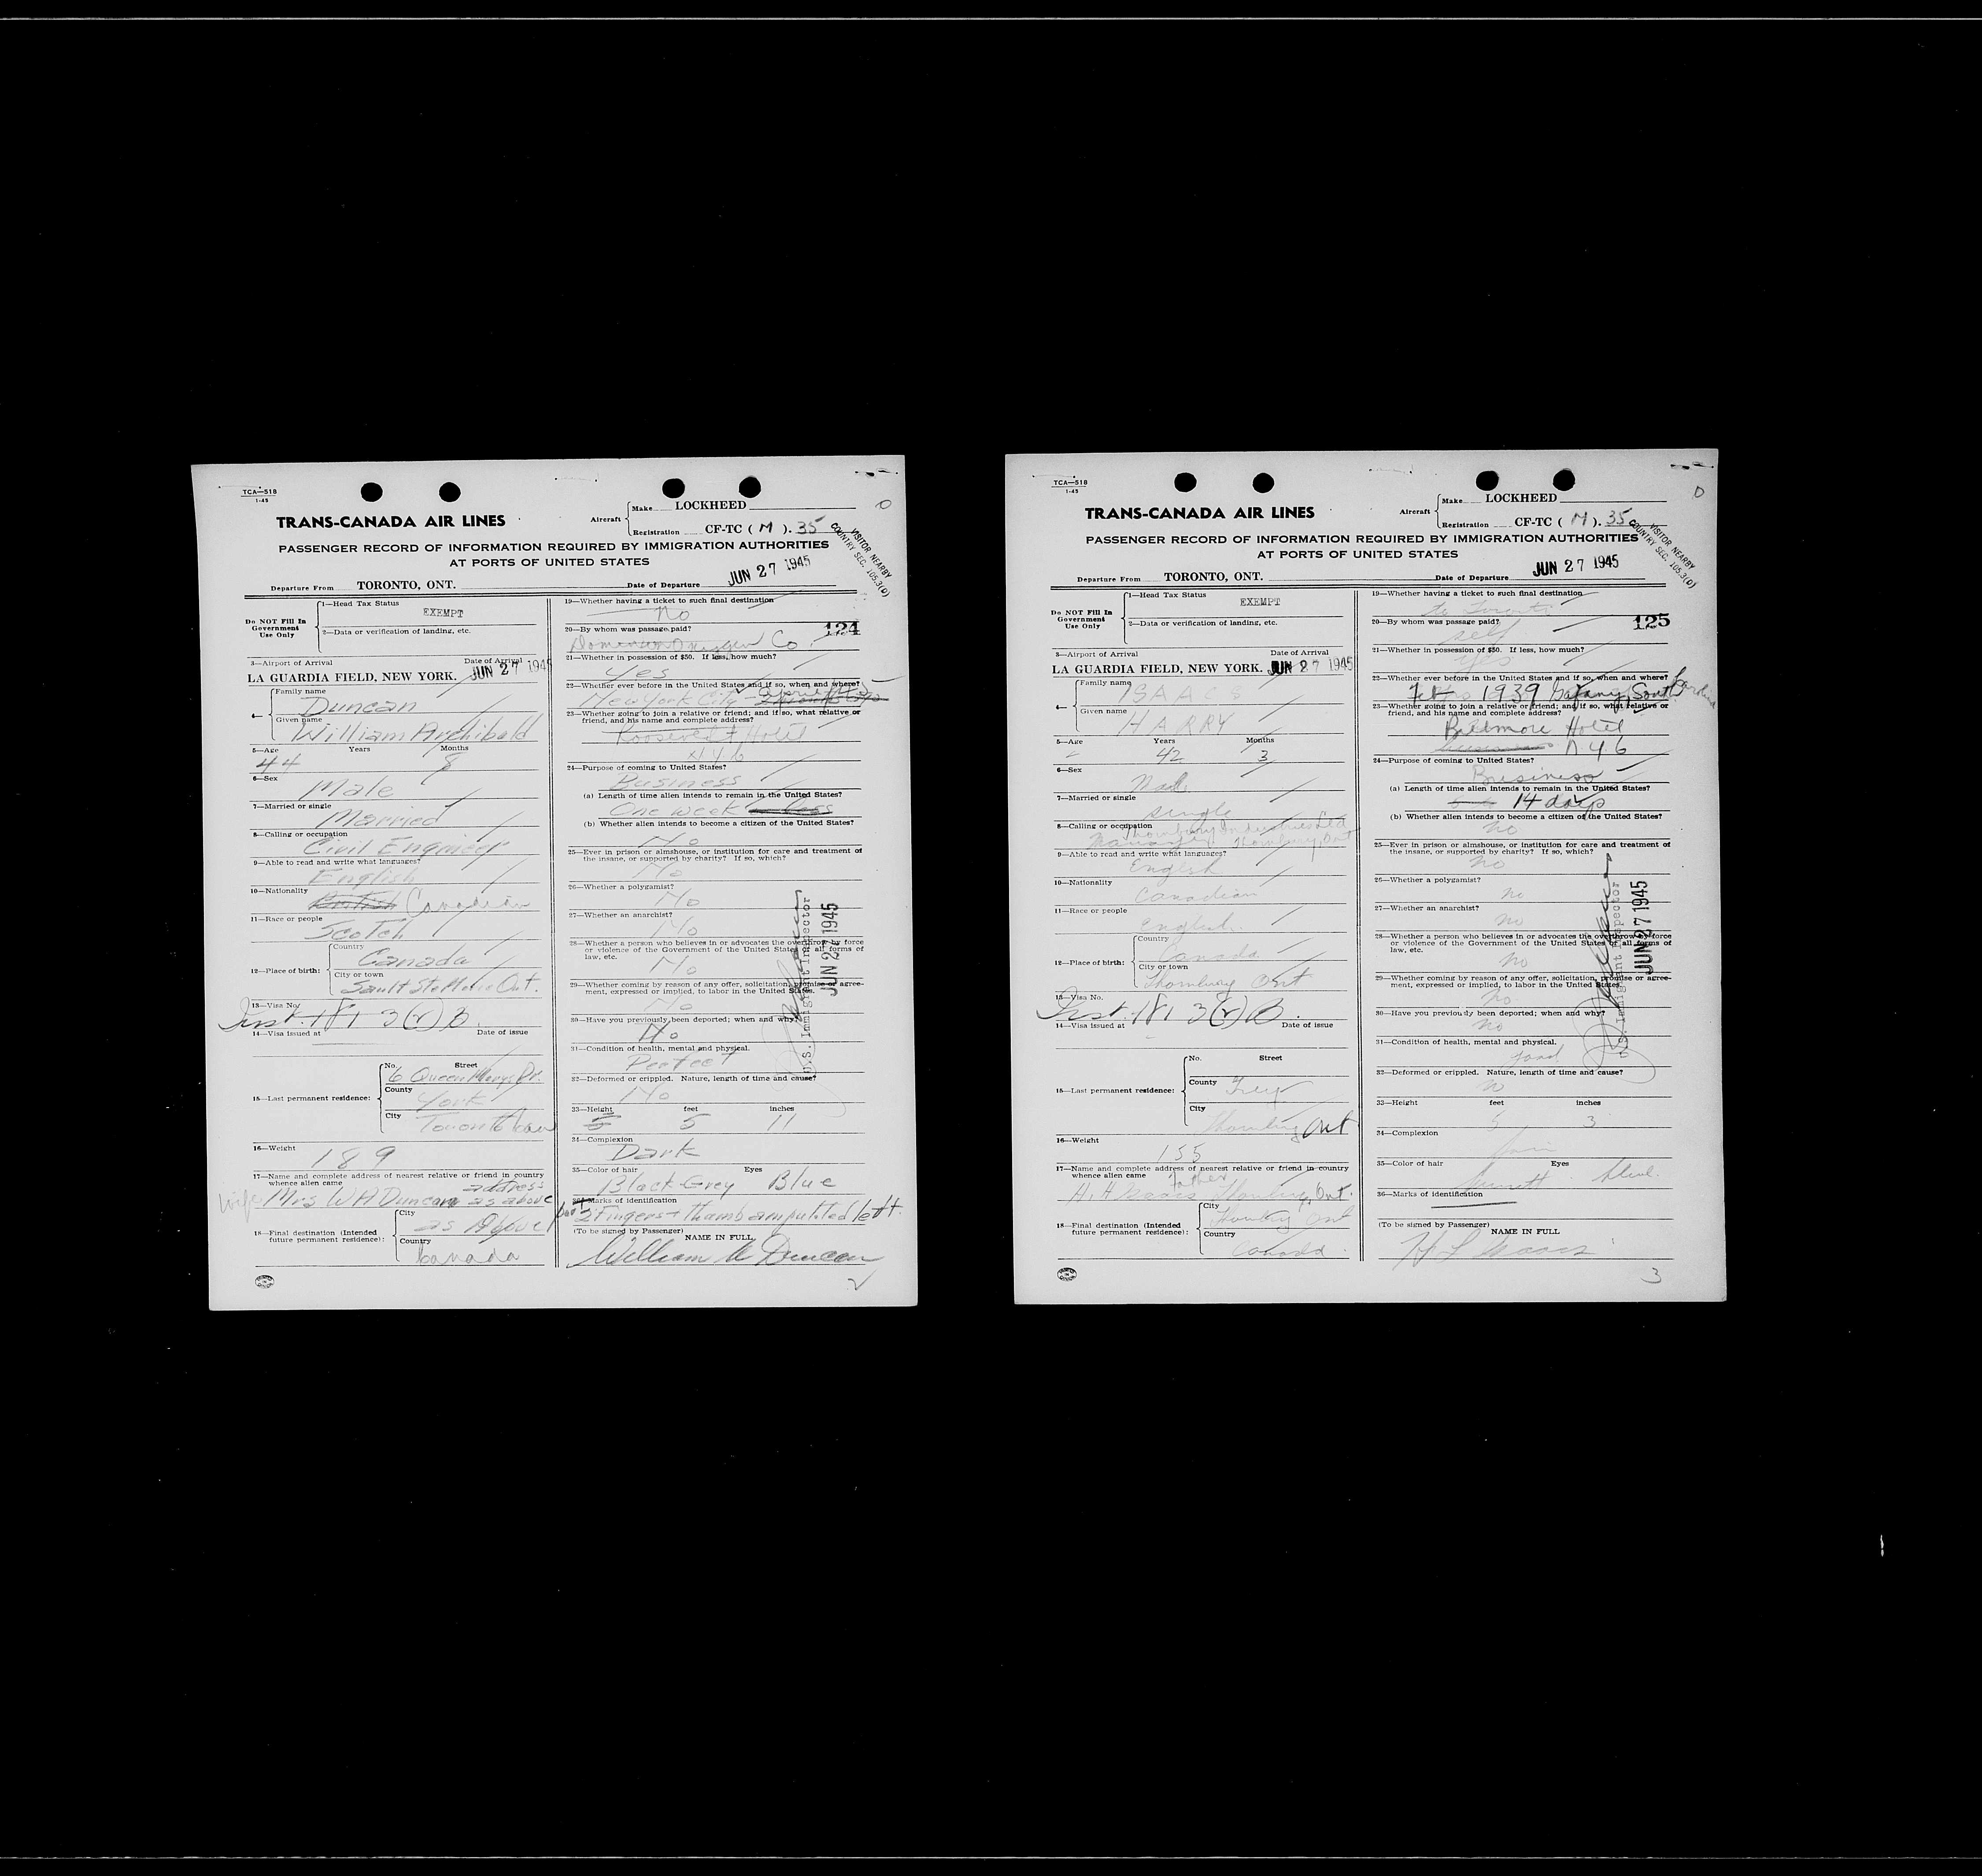 TCA—518
1-45
TRANS-CANADA AIR LINES
Aircraft
Make LOCKHEED
Registration CF-TC ( M ). 35
VISITOR NEARBY
COUNTRY SEC. 105.3(D)
PASSENGER RECORD OF INFORMATION REQUIRED BY IMMIGRATION AUTHORITIES
AT PORTS OF UNITED STATES
Departure From TORONTO, ONT.
Date of Departure JUN 27 1945
Do NOT Fill In
Government
Use Only
1—Head Tax Status
EXEMPT
2—Data or verification of landing, etc.
3—Airport of Arrival
Date of Arrival
LA GUARDIA FIELD, NEW YORK. JUN 27 1945
4—
Family name
Duncan
Given name
William Archibald
5—Age Years Months
44 8
6—Sex
Male
7—Married or single
Married
8—Calling or occupation
Civil Engineer
9—Able to read and write what languages?
English
10—Nationality
British Canadian
11—Race or people
Scotch
12—Place of birth:
Country
Canada
City or town
Sault Ste Marie Ont.
13—Visa No.
181 3(r) B.
14—Visa issued at Date of issue
15—Last permanent residence:
No. Street
6 Queen Marys Dr.
County
York
City
Toronto
16—Weight
189
17—Name and complete address of nearest relative or friend in country
whence alien came
address
wife Mrs W A Duncan as above
18—Final destination (Intended
future permanent residence):
City
as Above
Country
Canada
19—Whether having a ticket to such final destination
No
20—By whom was passage paid?
124
Dominion Oxygen Co.
21—Whether in possession of $50. If less, how much?
Yes
22—Whether ever before in the United States and if so, when and where?
New York City
23—Whether going to join a relative or friend; and if so, what relative or
friend, and his name and complete address?
Roosevelt Hotel
24—Purpose of coming to United States?
Business
(a) Length of time alien intends to remain in the United States?
One week or less
(b) Whether alien intends to become a citizen of the United States?
No
25—Ever in prison or almshouse, or institution for care and treatment of
the insane, or supported by charity? If so, which?
No
26—Whether a polygamist?
No
27—Whether an anarchist?
No
28—Whether a person who believes in or advocates the overthrow by force
or violence of the Government of the United States or all forms of
law, etc.
No
29—Whether coming by reason of any offer, solicitation, promise or agree-
ment, expressed or implied, to labor in the United States.
No
30—Have you previously been deported; when and why?
No
31—Condition of health, mental and physical.
Perfect
32—Deformed or crippled. Nature, length of time and cause?
No
33—Height feet inches
5 5 11
34—Complexion
Dark
35—Color of hair Eyes
Black-Grey Blue
36—Marks of identification
2 Fingers + thumb amputated left.
(To be signed by Passenger)
NAME IN FULL
William A Duncan
U.S. Immigrant Inspector
JUN 27 1945
TCA—518
1-45
TRANS-CANADA AIR LINES
Aircraft
Make LOCKHEED
Registration CF-TC ( M ). 35
VISITOR NEARBY
COUNTRY SEC. 105.3(D)
PASSENGER RECORD OF INFORMATION REQUIRED BY IMMIGRATION AUTHORITIES
AT PORTS OF UNITED STATES
Departure From TORONTO, ONT.
Date of Departure JUN 27 1945
Do NOT Fill In
Government
Use Only
1—Head Tax Status
EXEMPT
2—Data or verification of landing, etc.
3—Airport of Arrival
Date of Arrival
LA GUARDIA FIELD, NEW YORK. JUN 27 1945
4—
Family name
ISAACS
Given name
HARRY
5—Age Years Months
42 3
6—Sex
Male
7—Married or single
single
8—Calling or occupation
Thornbury Industries Ltd
Manager Thornbury, Ont
9—Able to read and write what languages?
English
10—Nationality
Canadian
11—Race or people
English
12—Place of birth:
Country
Canada
City or town
Thornbury Ont
13—Visa No.
181 3(r) B.
14—Visa issued at Date of issue
15—Last permanent residence:
No. Street
County
Grey
City
Thornbury Ont
16—Weight
155
17—Name and complete address of nearest relative or friend in country
whence alien came
father
H. H Isaacs Thornbury, Ont.
18—Final destination (Intended
future permanent residence):
City
Thornbury Ont
Country
Canada
19—Whether having a ticket to such final destination
to Toronto
20—By whom was passage paid?
125
self
21—Whether in possession of $50. If less, how much?
yes
22—Whether ever before in the United States and if so, when and where?
1939 South Carolina
23—Whether going to join a relative or friend; and if so, what relative or
friend, and his name and complete address?
Biltmore Hotel
24—Purpose of coming to United States?
Business
(a) Length of time alien intends to remain in the United States?
14 days
(b) Whether alien intends to become a citizen of the United States?
no
25—Ever in prison or almshouse, or institution for care and treatment of
the insane, or supported by charity? If so, which?
no
26—Whether a polygamist?
no
27—Whether an anarchist?
no
28—Whether a person who believes in or advocates the overthrow by force
or violence of the Government of the United States or all forms of
law, etc.
no
29—Whether coming by reason of any offer, solicitation, promise or agree-
ment, expressed or implied, to labor in the United States.
no
30—Have you previously been deported; when and why?
no
31—Condition of health, mental and physical.
good
32—Deformed or crippled. Nature, length of time and cause?
no
33—Height feet inches
5 3
34—Complexion
fair
35—Color of hair Eyes
36—Marks of identification
(To be signed by Passenger)
NAME IN FULL
H L Isaacs
3
U.S. Immigrant Inspector
JUN 27 1945